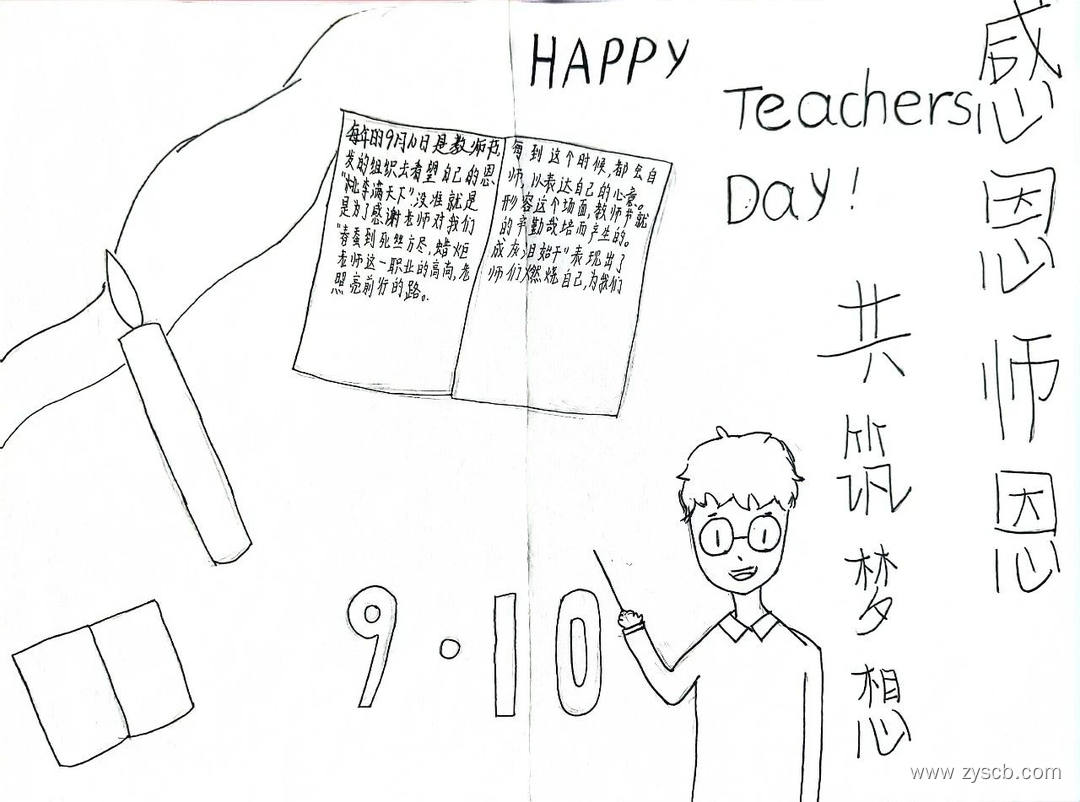 HAPPY
Teachers
Day!
感恩师恩
共筑梦想
每年的9月10日是教师节,每到这个时候,都会自
发的组织去看望自己的恩师,以表达自己的心意。
"桃李满天下"没准就是形容这个场面,教师节就
是为了感谢老师对我们的辛勤栽培而产生的。
"春蚕到死丝方尽,蜡炬成灰泪始干"表现出了
老师这一职业的高尚,老师们燃烧自己,为我们
照亮前行的路。
9·10
www.zyscb.com